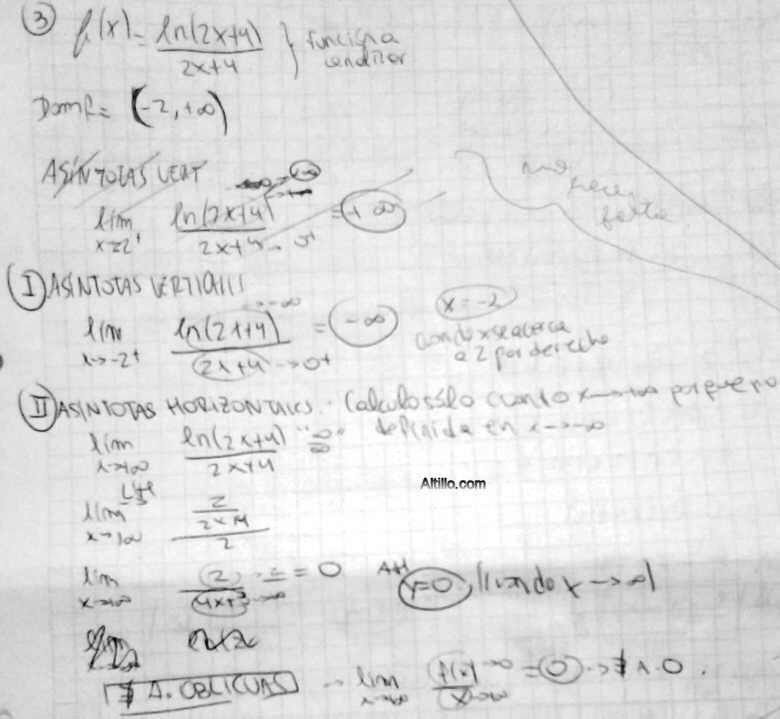 ③ f(x) = ln(2x+4) / 2x+4 } función a analizar
Domf = (-2, +∞)
ASÍNTOTAS VERT
lim x→2⁺ ln(2x+4) / 2x+4 → 0⁺ = +∞
no hace falta
Ⓘ ASÍNTOTAS VERTICALES
lim x→-2⁺ ln(2x+4) → -∞ / 2x+4 → 0⁺ = -∞ x=-2
cuando x se acerca
a 2 por derecha
Ⓘⓘ ASÍNTOTAS HORIZONTALES. Calculo sólo cuando x→+∞ porque no
definida en x→-∞
lim x→+∞ ln(2x+4) / 2x+4 "∞/∞"
Altillo.com
L'H
lim x→+∞ 2/2x+4 / 2
lim x→+∞ = 0 AH y=0 cuando x→∞
∄ A. OBLICUAS → lim x→+∞ f(x) → 0 / x→∞ = 0 → ∄ A.O.